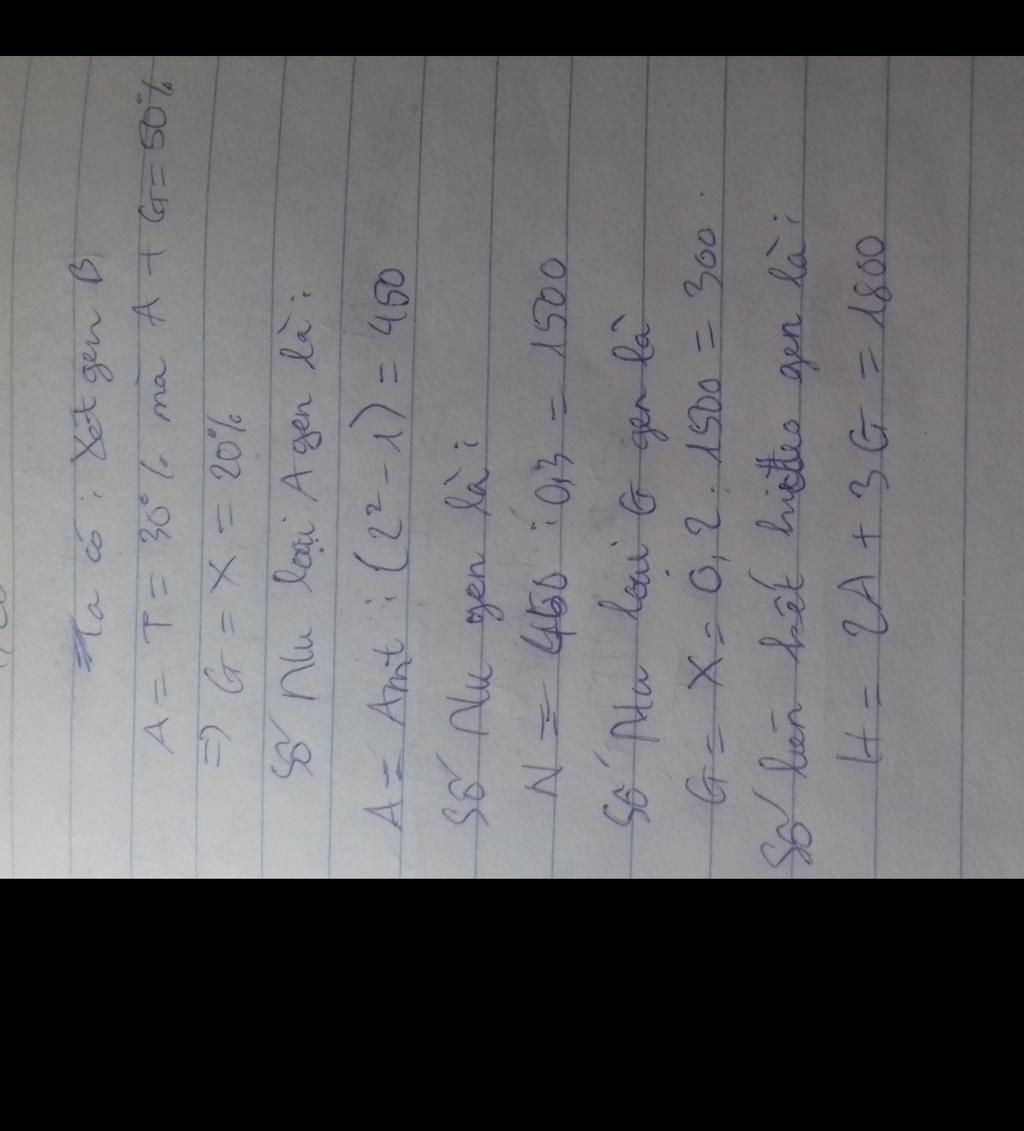 Ta có : Xét gen B
A = T = 30% mà A + G = 50%
=> G = X = 20%
Số Nu loại A gen là :
A = Amt : (2² - 1) = 450
Số Nu gen là :
N = 450 : 0,3 = 1500
Số Nu loại G gen là
G = X = 0,2 . 1500 = 300.
Số liên kết hiđro gen là :
H = 2A + 3G = 1800